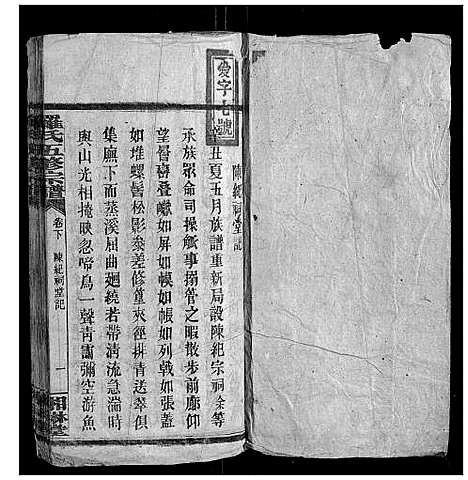 愛字七號
陳紀祠堂記
丑夏五月族譜重新局設陳紀宗祠余等
承族眾命司操觚事搦管之暇散步前廊仰
望層巒疊巘如屏如幛如帳如列戟如張蓋
如堆螺髻松影參差修篁夾徑排青送翠俱
集廡下而蒸溪屈曲廻繞若帶清流急湍時
與山光相掩映忽啼鳥一聲青靄彌空游魚
羅氏五修宗譜
卷下
陳紀祠堂記
一